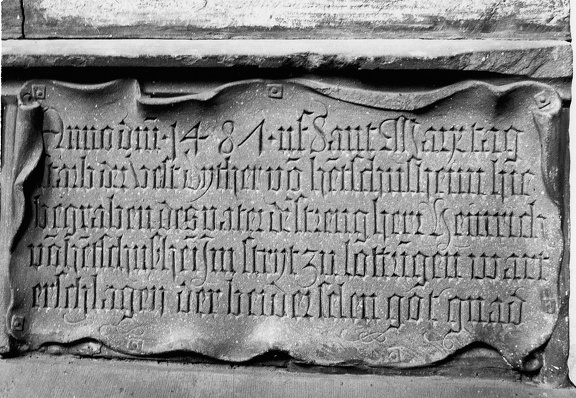 Anno dm̄ · 1481 · uf Sant Marx tag
starb der vest wyther vō hētschussheim hie
begraben des vater d' streng herr Heinrich
vō hētschusshēī Im stryt zu lottrigen wart
erschlagen der beider selen got gnad